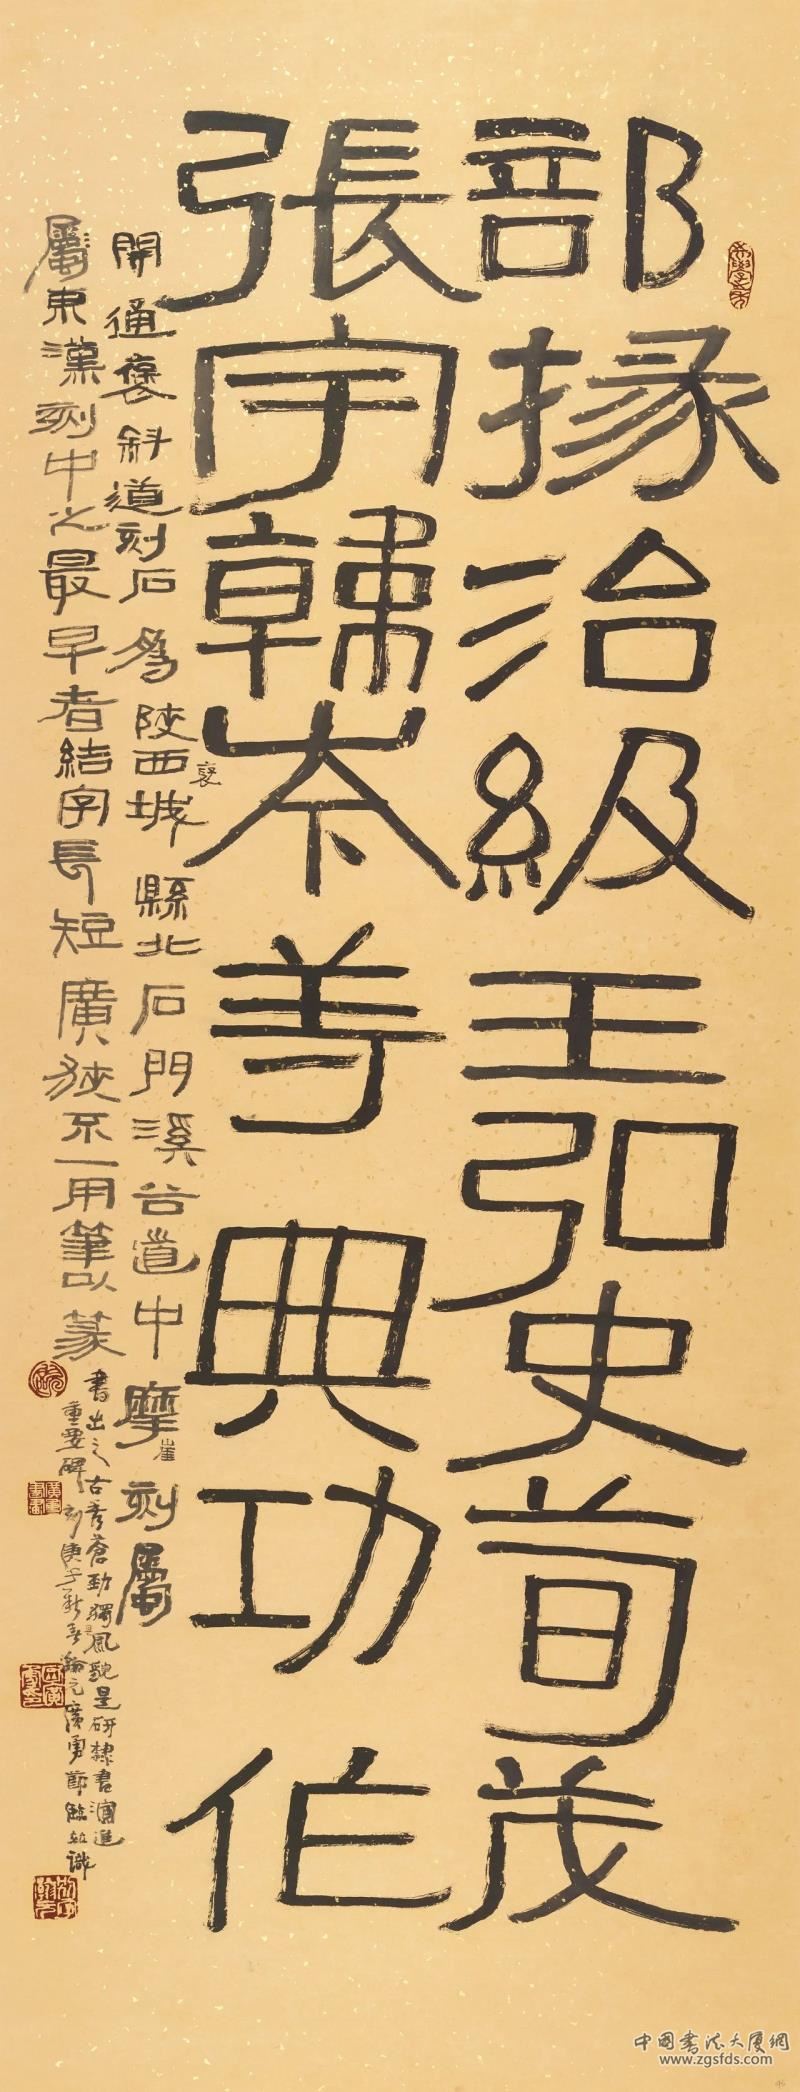 部掾治級王弘史荀茂
張宇韓岑等典功作
開通褒斜道刻石為陝西褒城縣北石門溪谷道中摩崖刻屬
屬東漢刻中之最早者結字長短廣狹不一用筆以篆
書出之古秀蒼勁獨具風貌是研隸書演進
重要碑刻庚子新春瀚元廣勇節臨並識
中国书法大厦網
www.zgsfds.com